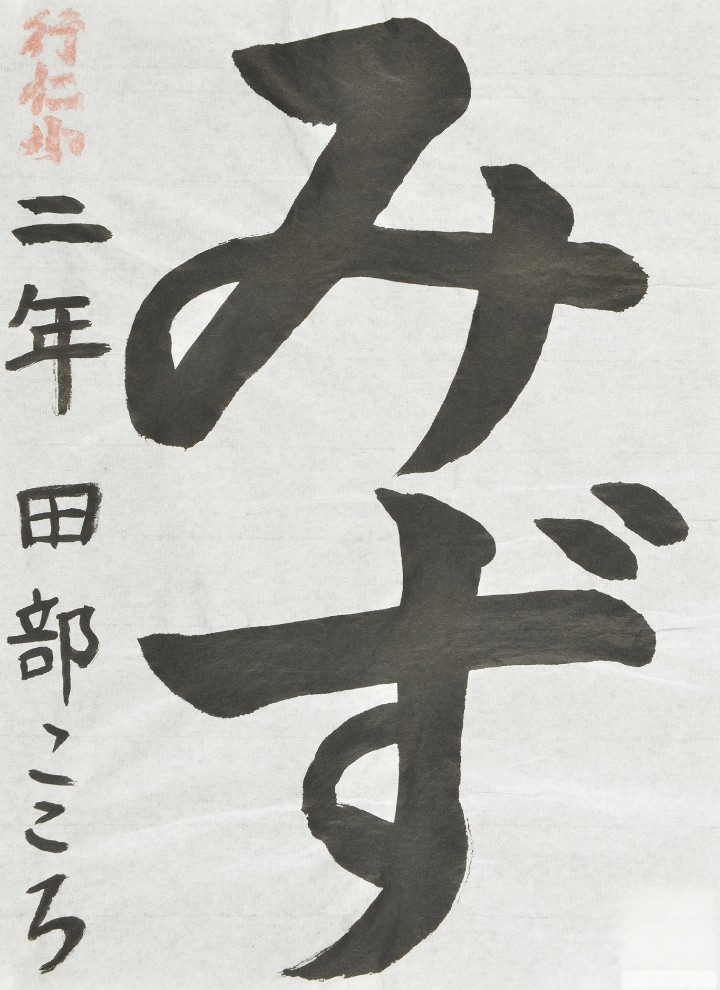 みず
行仁小 二年 田部こころ